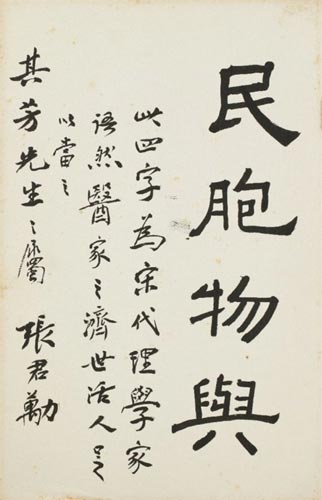 民胞物與
此四字為宋代理學家
語然醫家之濟世活人足
以當之
其芳先生之屬
張君勱